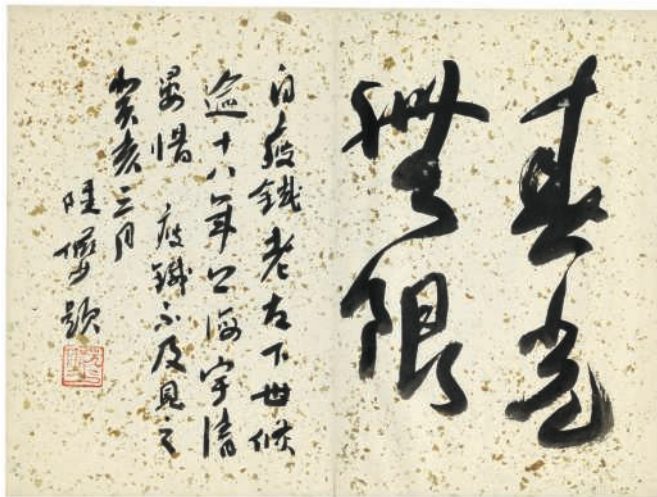 春光
無限
自瘦鐵老友下世倏
逾十八年今海宇清
晏惜瘦鐵不及見之
癸亥三月
陸儼少題